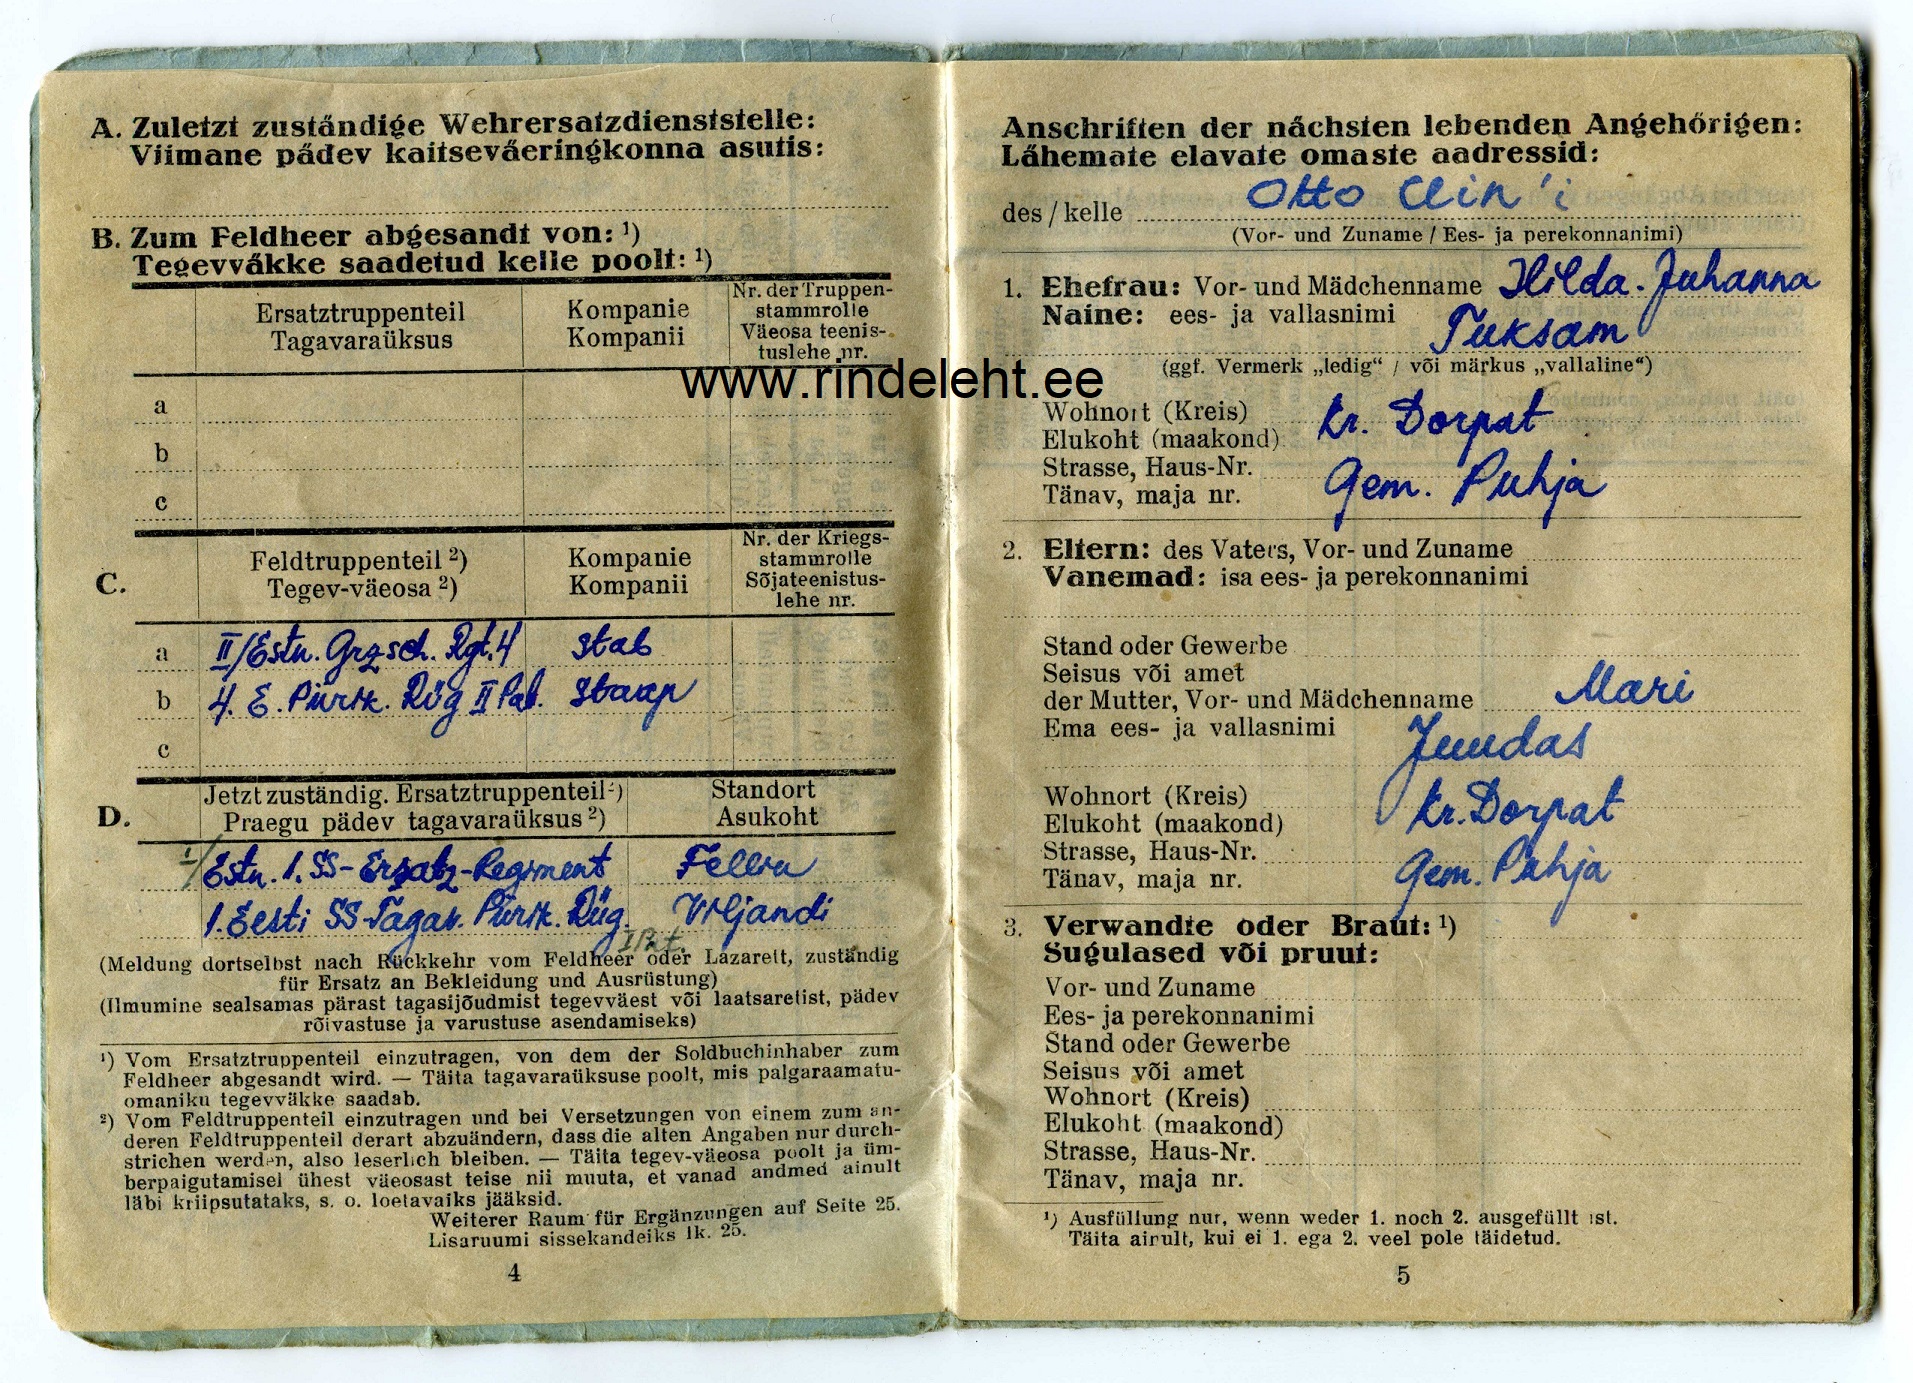 A. Zuletzt zuständige Wehrersatzdienststelle:
Viimane pädev kaitseväeringkonna asutis:
B. Zum Feldheer abgesandt von: ¹)
Tegevväkke saadetud kelle poolt: ¹)
Ersatztruppenteil
Tagavaraüksus
Kompanie
Kompanii
Nr. der Truppen-
stammrolle
Väeosa teenis-
tuslehe nr.
www.rindeleht.ee
a
b
c
C.
Feldtruppenteil ²)
Tegev-väeosa ²)
Kompanie
Kompanii
Nr. der Kriegs-
stammrolle
Sõjateenistus-
lehe nr.
a II/Estn. Grzsch. Rgt. 4 Stab
b 4. E. Piirik. Rüg II Pat. Staap
c
D.
Jetzt zuständig. Ersatztruppenteil ²)
Praegu pädev tagavaraüksus ²)
Standort
Asukoht
Estn. 1. SS-Ersatz-Regiment Fellin
1. Eesti SS-Tagav. Piirik. Rüg. Viljandi
(Meldung dortselbst nach Rückkehr vom Feldheer oder Lazarett, zuständig
für Ersatz an Bekleidung und Ausrüstung)
(Ilmumine sealsamas pärast tagasijõudmist tegevväest või laatsaretist, pädev
rõivastuse ja varustuse asendamiseks)
¹) Vom Ersatztruppenteil einzutragen, von dem der Soldbuchinhaber zum
Feldheer abgesandt wird. — Täita tagavaraüksuse poolt, mis palgaraamatu-
omaniku tegevväkke saadab.
²) Vom Feldtruppenteil einzutragen und bei Versetzungen von einem zum an-
deren Feldtruppenteil derart abzuändern, dass die alten Angaben nur durch-
strichen werden, also leserlich bleiben. — Täita tegev-väeosa poolt ja üm-
berpaigutamisel ühest väeosast teise nii muuta, et vanad andmed ainult
läbi kriipsutataks, s. o. loetavaiks jääksid.
Weiterer Raum für Ergänzungen auf Seite 25.
Lisaruumi sissekandeiks lk. 25.
4
Anschriften der nächsten lebenden Angehörigen:
Lähemate elavate omaste aadressid:
des / kelle Otto Ein'i
(Vor- und Zuname / Ees- ja perekonnanimi)
1. Ehefrau: Vor- und Mädchenname Hilda-Juhanna
Naine: ees- ja vallasnimi Tuksam
(ggf. Vermerk „ledig“ / või märkus „vallaline“)
Wohnort (Kreis)
Elukoht (maakond) Kr. Dorpat
Strasse, Haus-Nr.
Tänav, maja nr. Gem. Puhja
2. Eltern: des Vaters, Vor- und Zuname
Vanemad: isa ees- ja perekonnanimi
Stand oder Gewerbe
Seisus või amet
der Mutter, Vor- und Mädchenname Mari
Ema ees- ja vallasnimi Juudas
Wohnort (Kreis)
Elukoht (maakond) Kr. Dorpat
Strasse, Haus-Nr.
Tänav, maja nr. Gem. Puhja
3. Verwandte oder Braut: ¹)
Sugulased või pruut:
Vor- und Zuname
Ees- ja perekonnanimi
Stand oder Gewerbe
Seisus või amet
Wohnort (Kreis)
Elukoht (maakond)
Strasse, Haus-Nr.
Tänav, maja nr.
¹) Ausfüllung nur, wenn weder 1. noch 2. ausgefüllt ist.
Täita ainult, kui ei 1. ega 2. veel pole täidetud.
5